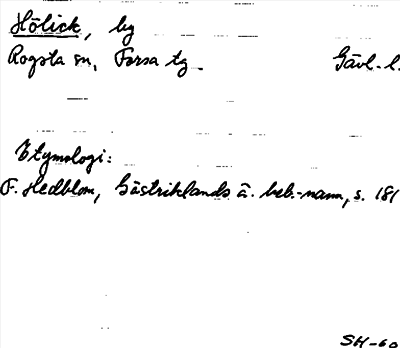 Hölick, by
Rogsta sn, Forsa tg Gävl. l.
Etymologi:
F. Hedblom, Gästriklands ä. beb.-namn, s. 181
SH-60